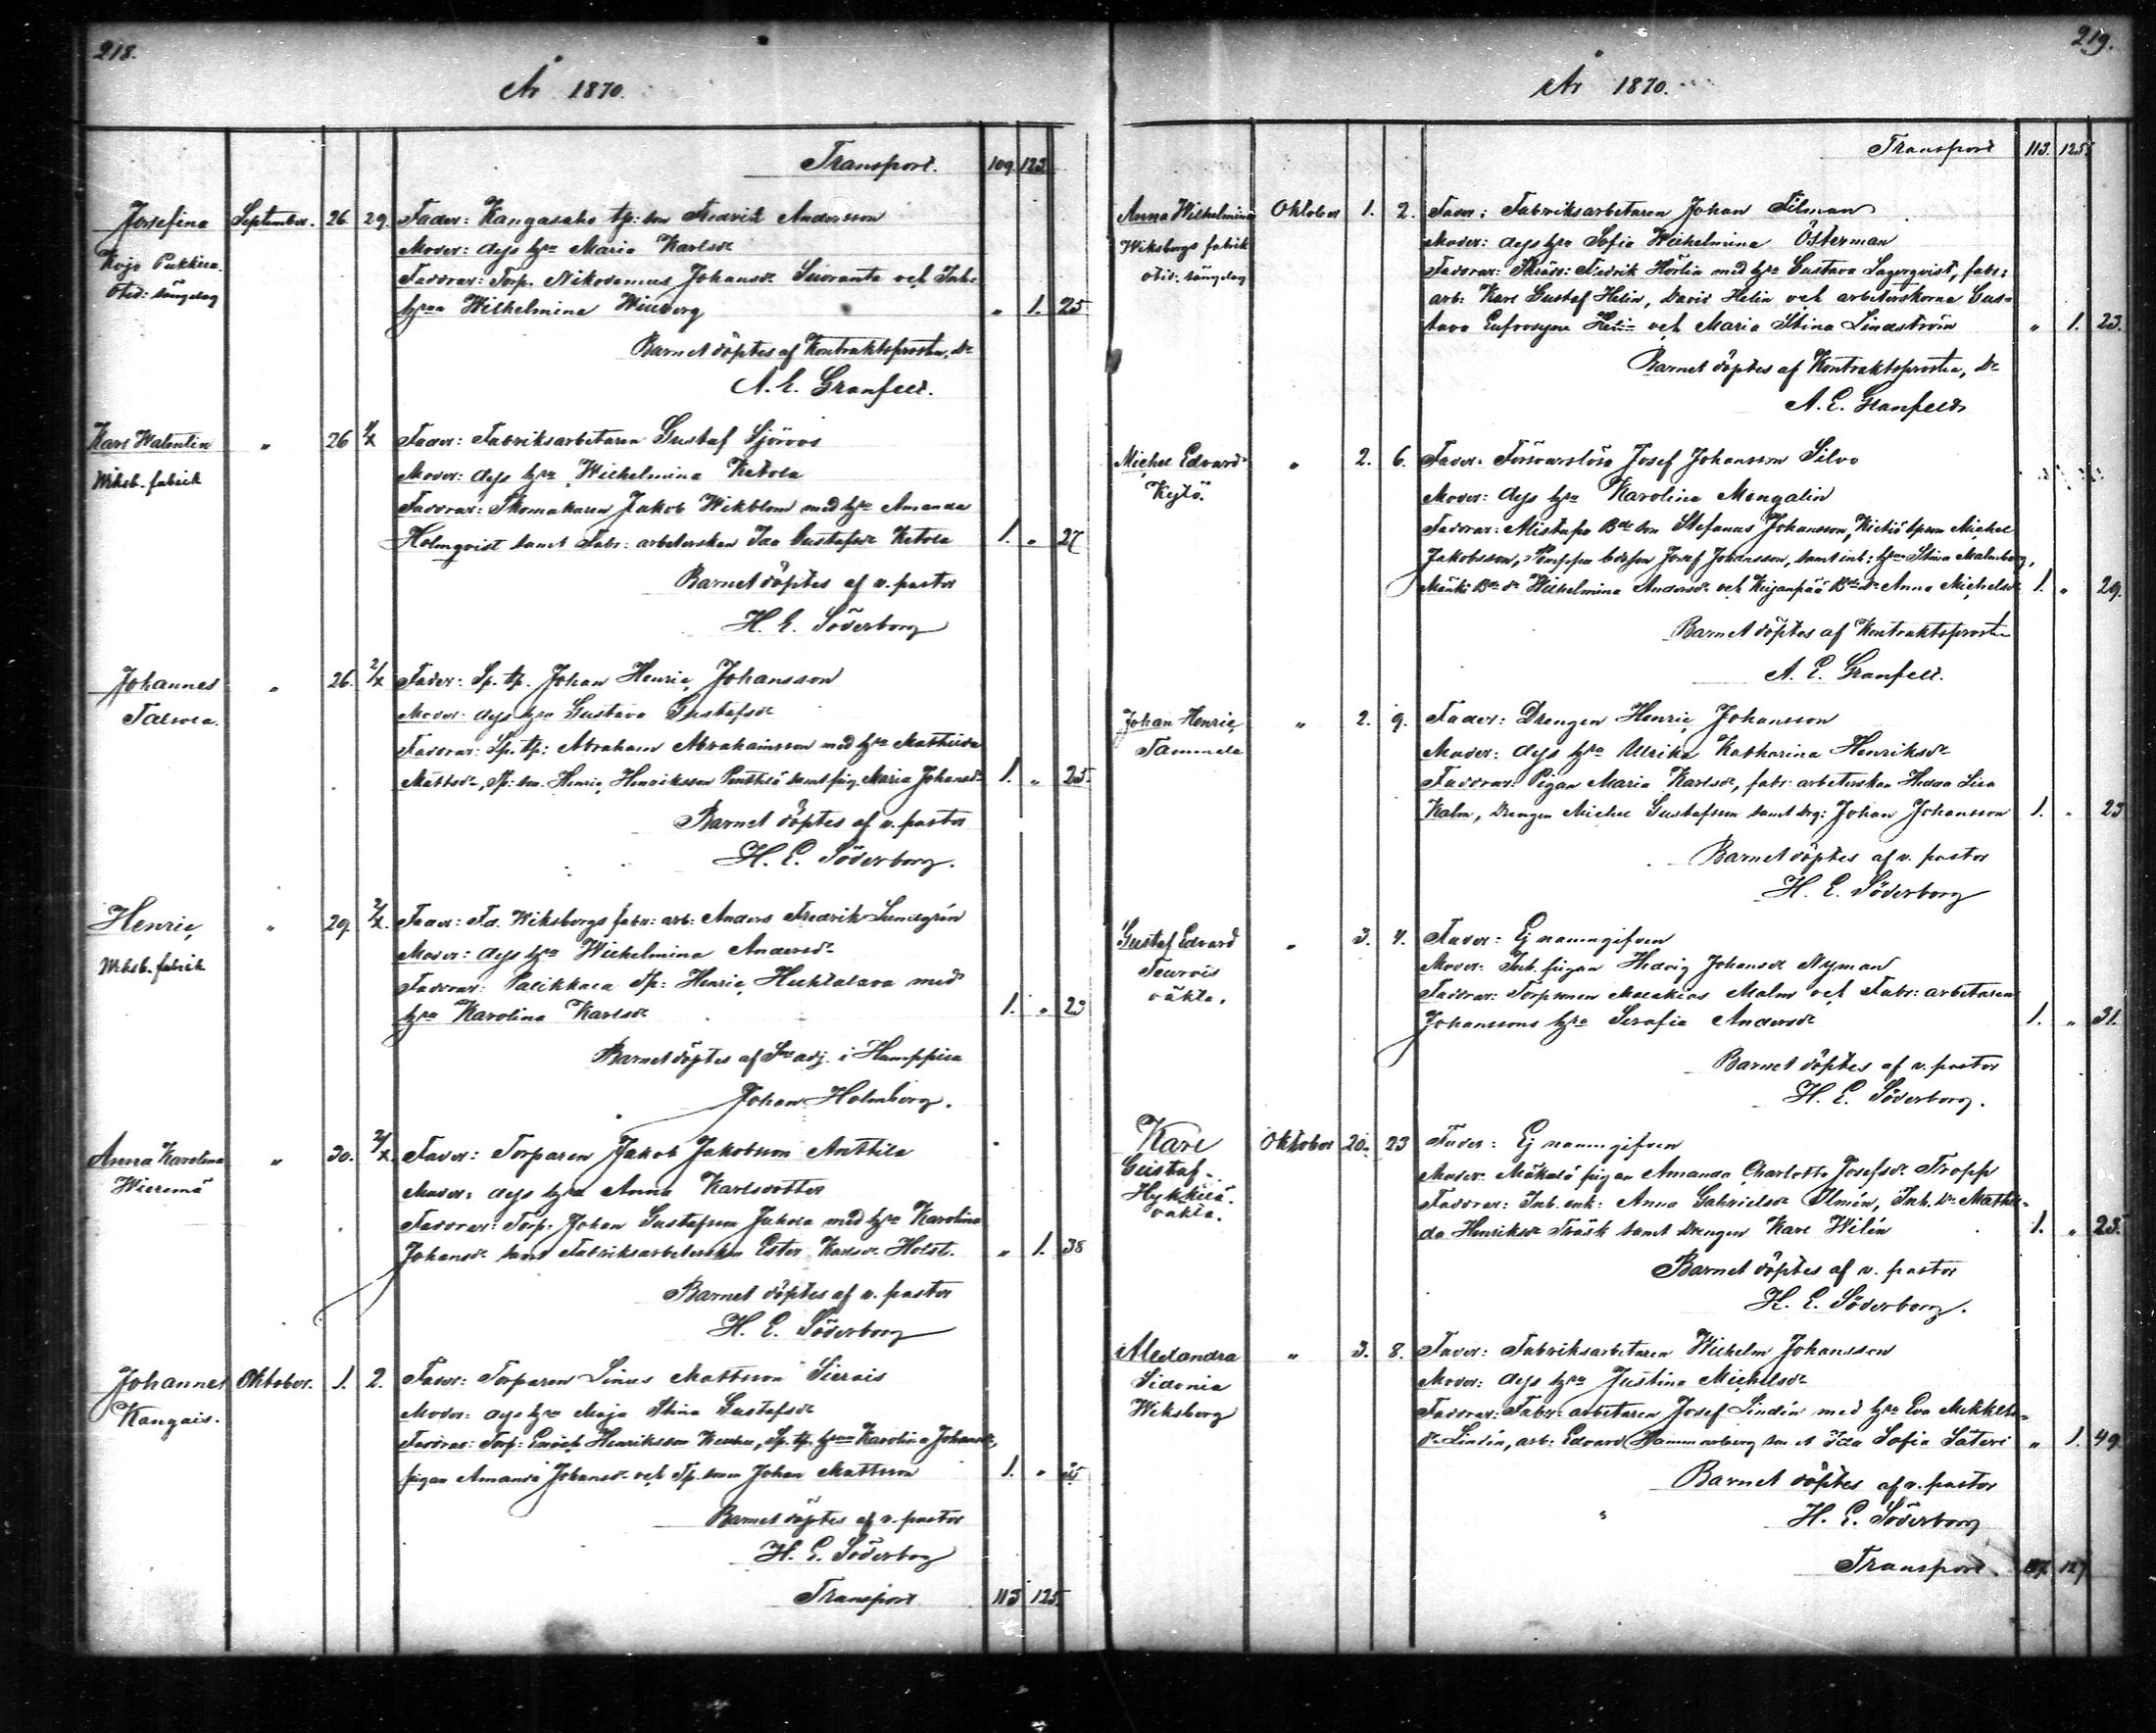 218.
År 1870.
Transport. 109. 123
Josefina September. 26 29. Fader: Kangasaho tp: son Fredrik Andersson
Moder: dess hru Maria Karlsdr
Kojo Pukkila. Faddrar: Torp. Nikodemus Johansdr Suoranta och Inh.
Otid: söngdag hrun Wilhelmina Winberg " 1. 25
Barnet döptes af Kontraktsprosten, Dr
A. E. Granfelt.
Karl Walentin " 26 1/X Fader: Fabriksarbetaren Gustaf Sjöroos
Wiksb. fabrik Moder: dess hru Wilhelmina Ketola
Faddrar: Skomakaren Jakob Wikblom med hru Amanda
Holmqvist samt Fabr: arbeterskan Ida Gustafsdr Ketola 1. " 27
Barnet döptes af v. pastor
H. E. Söderborg
Johannes " 26. 2/X Fader: Sp. tp. Johan Henric Johansson
Moder: dess hru Gustava Gustafsdr
Faddrar: Sp. tp: Abraham Abrahamsson med hru Mathilda
Mattsdr, tp: son Henric Henriksson Penttilä samt pig. Maria Johansdr 1. " 25.
Barnet döptes af v. pastor
H. E. Söderborg.
Henric " 29. 2/X. Fader: Fd. Wiksbergs fabr: arb: Anders Fredrik Lundgrén
Wiksb. fabrik Moder: dess hru Wilhelmina Andersdr
Faddrar: Palikkala Tp: Henric Huhtalava med
hru Karolina Karlsdr 1. " 23
Barnet döptes af Sne adj. i Humppila
Johan Holmberg.
Anna Karolina " 30. 2/X. Fader: Torparen Jakob Jakobsson Anttila
Wieremä Moder: dess hru Anna Karlsdotter
Faddrar: Torp: Johan Gustafsson Juhola med hru Karolina
Johansdr samt Fabriksarbeterskan Ester Karlsdr Holst. " 1. 38
Barnet döptes af v. pastor
H. E. Söderborg
Johannes Oktober. 1. 2. Fader: Torparen Linus Mattsson Sierais
Kangais. Moder: dess hru Maja Stina Gustafsdr
Faddrar: Torp: Henriksson Sp. tp. hrun Karolina Johansdr,
pigan Amanda Johansdr och Tp. sonen Johan Mattsson 1. "
Barnet döptes af v. pastor
H. E. Söderborg
Transport 113 125.
219.
År 1870.
Transport 113. 125.
Anna Wilhelmina Oktober 1. 2. Fader: Fabriksarbetaren Johan Filman
Wiksbergs fabrik Moder: dess hru Sofia Wilhelmina Österman
otid. söngdag Faddrar: Skräd: Fredrik Hörlin med hru Gustava Lagerqvist, fabr:
arb: Karl Gustaf Helin, David Helin och arbeterskorna Gus=
tava Eufrosyne Helin och Maria Stina Lindström " 1. 23.
Barnet döptes af Kontraktsprosten, Dr
A. E. Granfelt
Michel Edvard " 2. 6. Fader: Försvarslöse Josef Johansson Silvo
Kytö. Moder: dess hru Karolina Mengalin
Faddrar: Bde son Stefanus Johansson, tpson Michel
Jakobsson, Josef Johansson, samt inh: hrun Stina Malmberg,
Mänki Bde dr Wilhelmina Andersdr och Bde dr Anna Michelsdr 1. " 29.
Barnet döptes af Kontraktsprosten
A. E. Granfelt.
Johan Henric " 2. 9. Fader: Drengen Henric Johansson
Tammela Moder: dess hru Ulrika Katharina Henriksdr
Faddrar: Pigan Maria Karlsdr, fabr: arbeterskan Hedda Lisa
Kalm, Drengen Michel Gustafsson samt drg: Johan Johansson 1. " 23
Barnet döptes af v. pastor
H. E. Söderborg
Gustaf Edvard " 3. 4. Fader: Ej namngifven
Teurois Moder: Inh. pigan Hedvig Johansdr Nyman
oäkta. Faddrar: Torpsonen Malakias Malm och Fabr: arbetaren
Johanssons hru Serafia Andersdr 1. " 31.
Barnet döptes af v. pastor
H. E. Söderborg.
Karl Oktober 20. 23 Fader: Ej namngifven
Gustaf. Moder: Mäkälä pigan Amanda Charlotta Josefsdr Tropp
Hykkilä. Faddrar: Inh. enk: Anna Gabrielsdr Ilmén, Inh. dr Mathil=
oäkta. da Henriksdr Träsk samt Drengen Karl Wilén 1. " 23.
Barnet döptes af v. pastor
H. E. Söderborg.
Alexandra " 3. 8. Fader: Fabriksarbetaren Wilhelm Johansson
Sidonia Moder: dess hru Justina Michelsdr
Wiksberg Faddrar: Fabr: arbetaren Josef Lindén med hru Eva Mikkels=
dr Lindén, arb: Edvard Hammarberg samt Ida Sofia Säteri " 1. 49
Barnet döptes af v. pastor
H. E. Söderborg
Transport. 117. 127